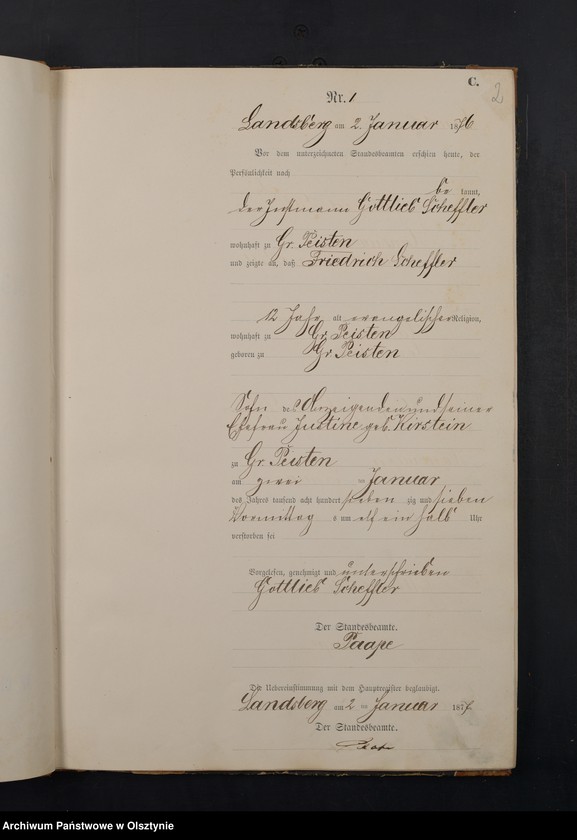 C.
2
Nr. 1
Landsberg am 2. Januar 1876
Vor dem unterzeichneten Standesbeamten erschien heute, der
Persönlichkeit nach
be kannt,
der Instmann Gottlieb Scheffler
wohnhaft zu Gr. Peisten
und zeigte an, daß Friedrich Scheffler
12 Jahr alt evangelischer Religion,
wohnhaft zu Gr. Peisten
geboren zu Gr. Peisten
Sohn des Anzeigenden und seiner
Ehefrau Justine geb. Kirstein
zu Gr. Peisten
am zwei ten Januar
des Jahres tausend acht hundert sieben zig und sieben
Vormittag s um elf ein halb Uhr
verstorben sei
Vorgelesen, genehmigt und unterschrieben
Gottlieb Scheffler
Der Standesbeamte.
Paape
Die Uebereinstimmung mit dem Hauptregister beglaubigt.
Landsberg am 2 ten Januar 1877
Der Standesbeamte.
Paape
Archiwum Państwowe w Olsztynie